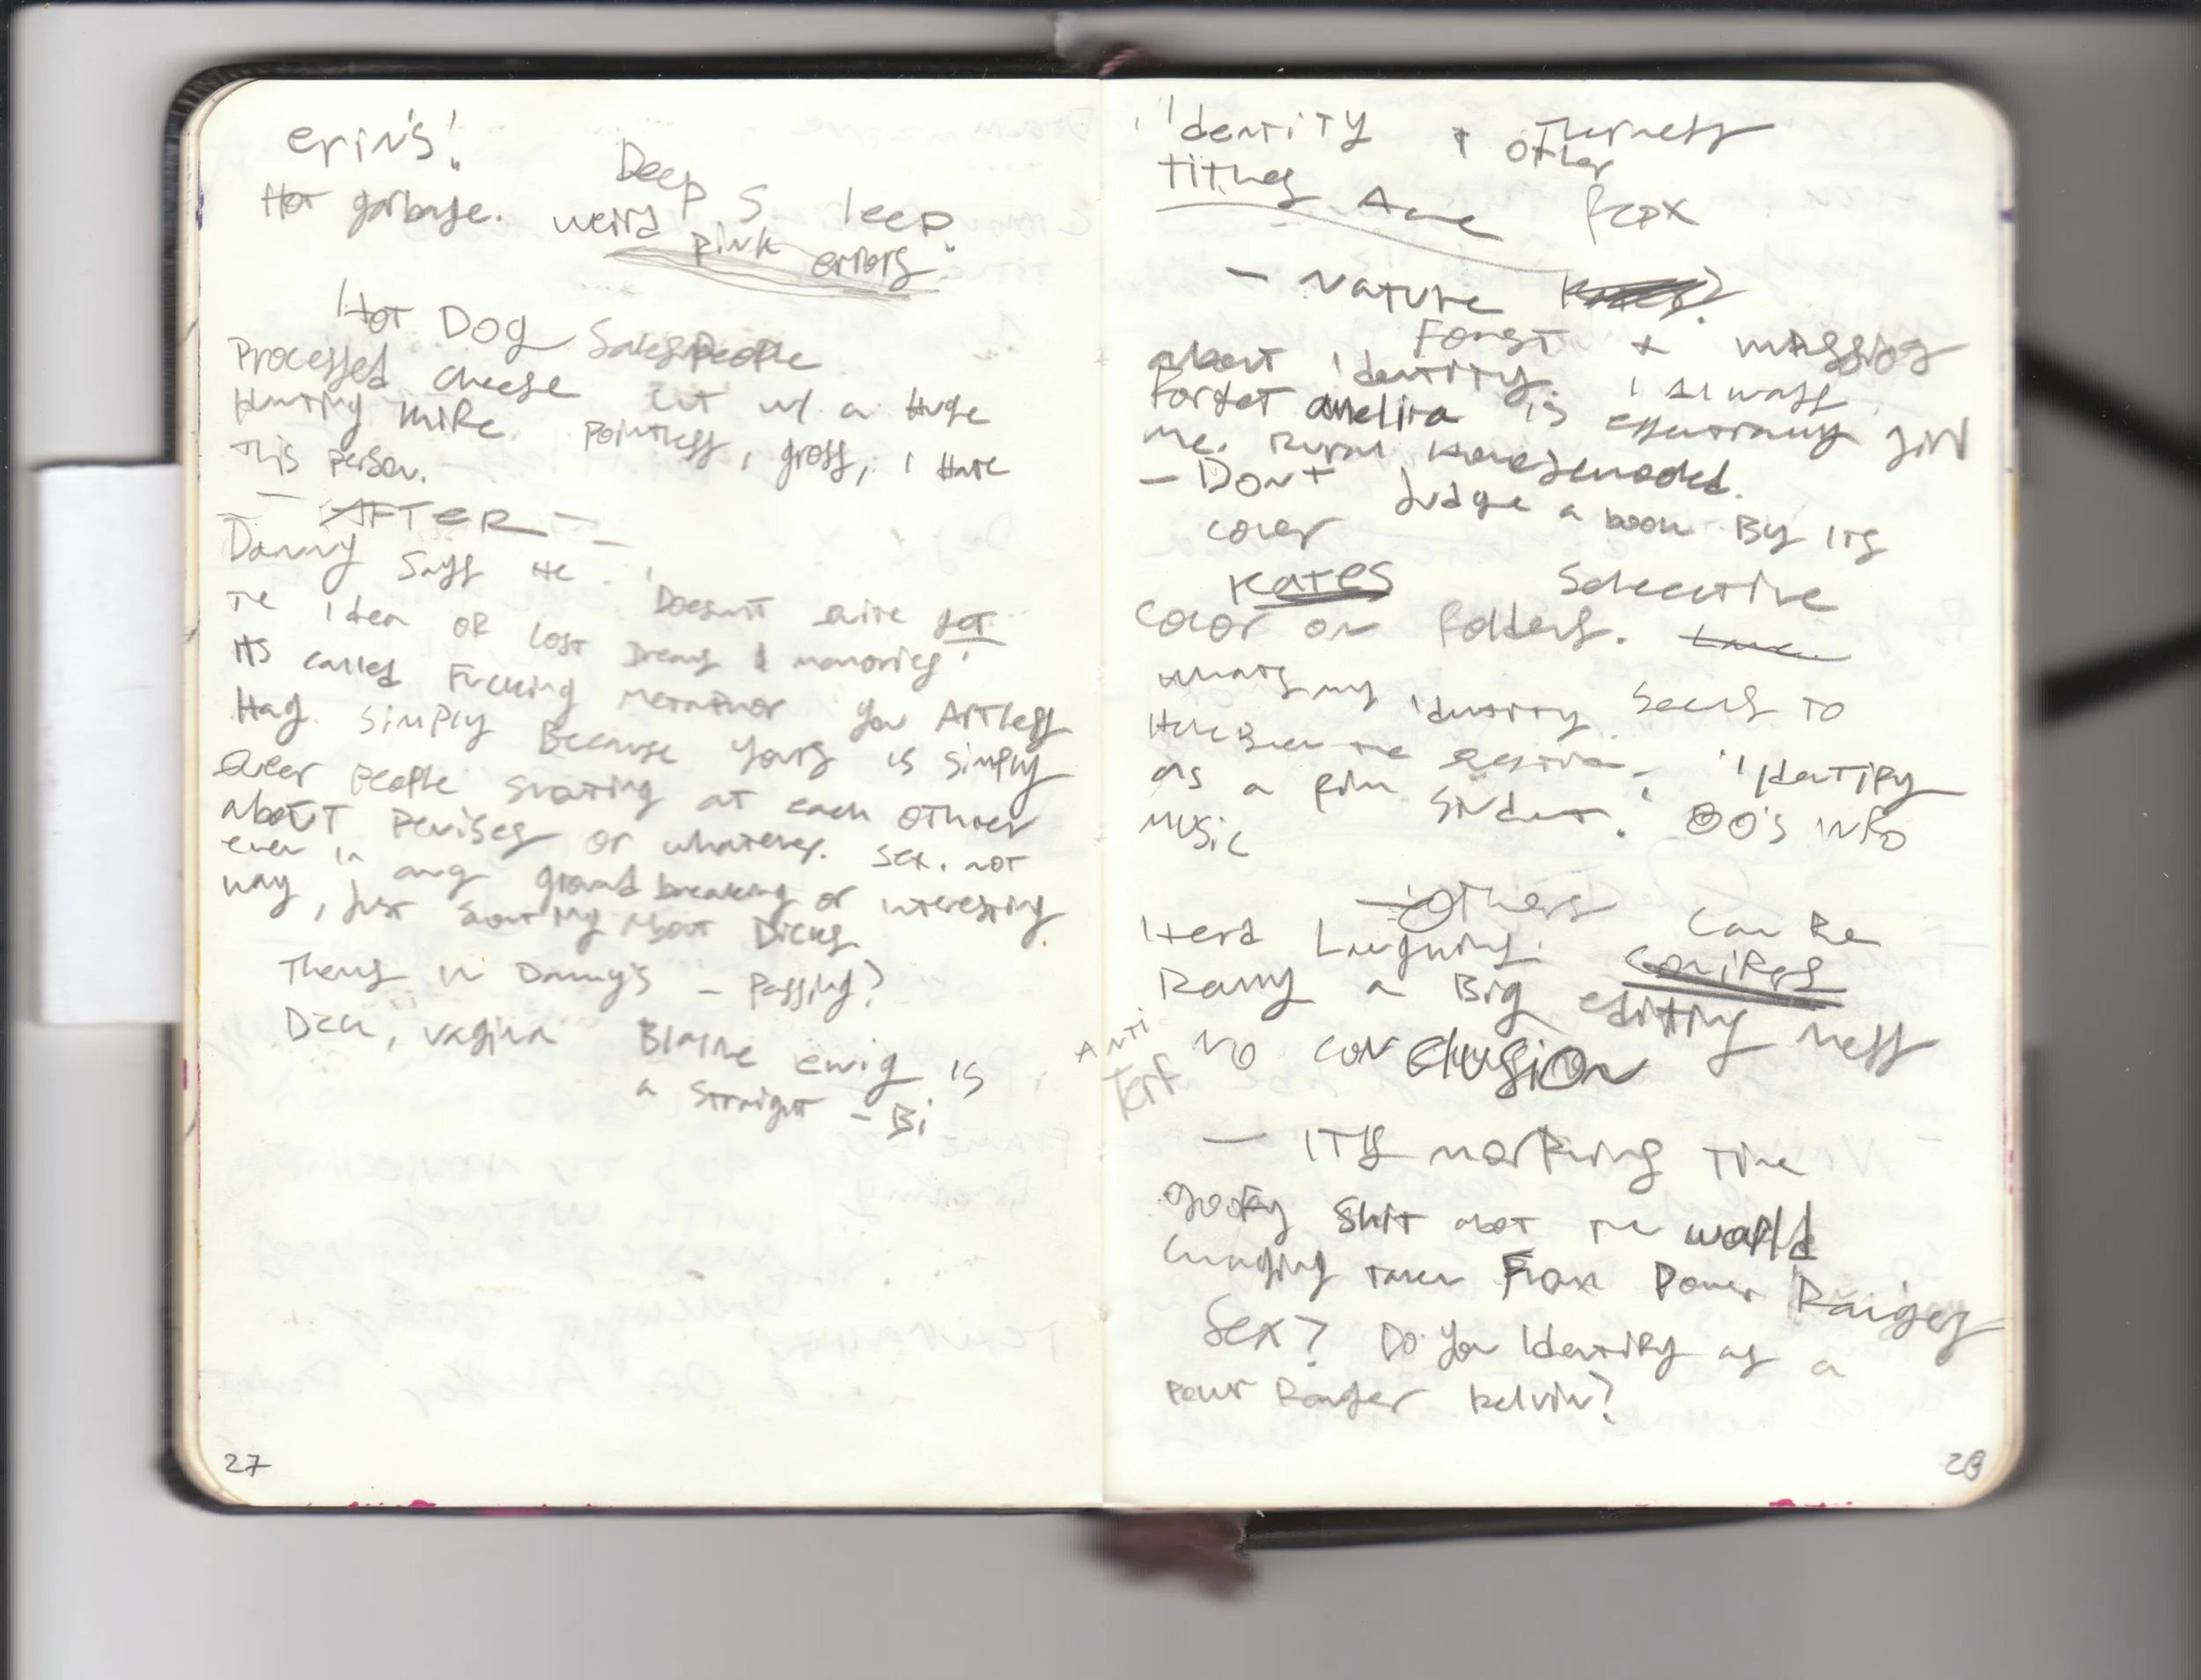 erin's!
Hot garbage. Deep Sleep.
weird pink errors.
Hot Dog Salespeople
Processed cheese cut w/ a Huge
Hunting knife. Pointless, gross, I Hate
This person.
— AFTER —
Danny Says He 'Doesn't quite get
the idea OR Lost Dreams & memories'
Its called Fucking Metaphor You Artless
Hag. Simply Because yours is simply
Queer People shouting at each other
about Penises or whatever. Sex. not
even in any groundbreaking or interesting
way, just shouting about Dicks.
Themes in Danny's — Passing?
Dick, vagina Blaine Ewig is
a Straight – Bi
27
Identity + Otherness
titles Are
— Nature
Forest + missing
about identity. I always
Forget amelia is essentially
me. Rural
— Don't Judge a book By its
cover
Kates Selective
Color on folders.
whats my identity seems to
Have Been the question. "I Identify
as a film student". 80's info
music
— Others Can Be
Herd Laughing.
Danny a Big editing mess
Anti
Terf
no conclusion
— ITS morphing time
goofy Shit abot the world
changing taken From Power Rangers
Sex? Do You Identify as a
Power Ranger Kelvin?
28